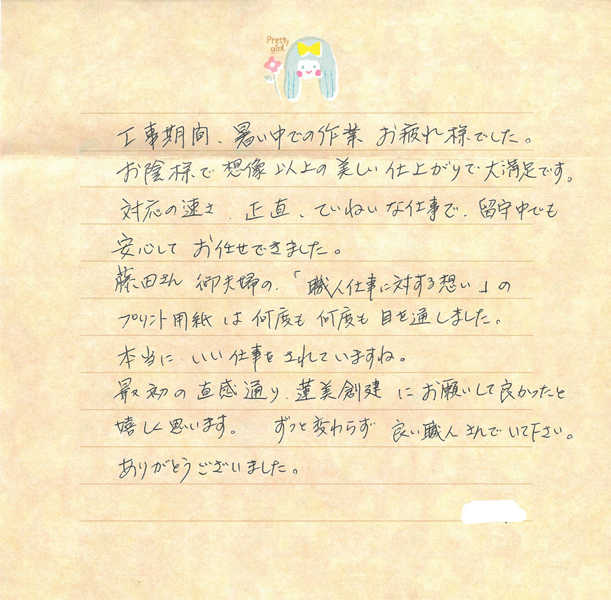 Pretty
girl
工事期間、暑い中での作業 お疲れ様でした。
お陰様で想像以上の美しい仕上がりで大満足です。
対応の速さ、正直、ていねいな仕事で、留守中でも
安心して お任せできました。
藤田さん 御夫婦の、「職人仕事に対する想い」の
プリント用紙は何度も何度も目を通しました。
本当に、いい仕事をされていますね。
最初の直感通り、蓮美創建にお願いして良かったと
嬉しく思います。 ずっと変わらず 良い職人さんでいて下さい。
ありがとうございました。